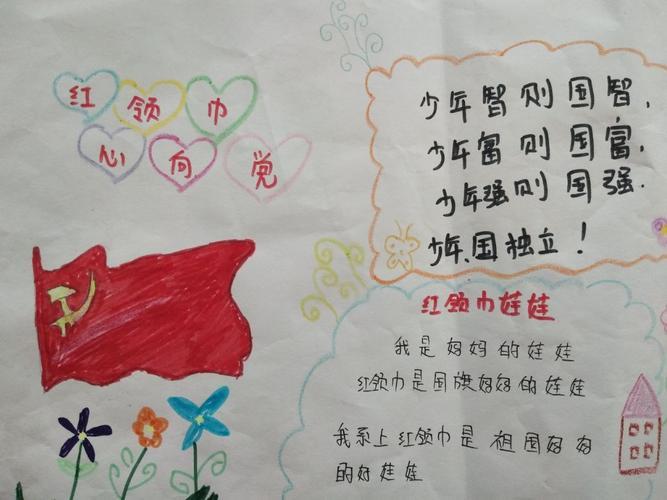 红领巾
心向党
少年智则国智,
少年富则国富,
少年强则国强.
少年、国独立！
红领巾娃娃
我是好妈的娃娃
红领巾是国旗好好的娃娃
我系上红领巾是祖国好好
的好娃娃